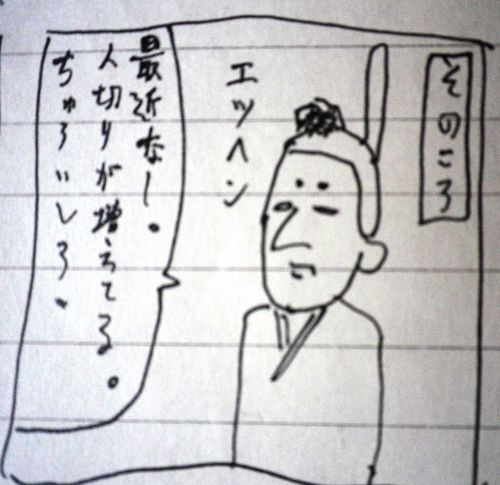 そのころ
エッヘン
最近なー。
人切りが増えてる。
ちゅういしろ。